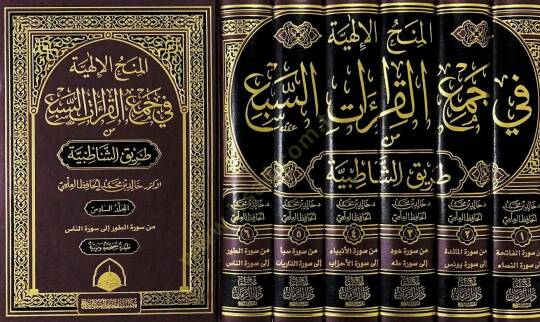 المنح الإلهية
في جمع القراءات السبع
من
طريق الشاطبية
الدكتور خالد بن محمد الحافظ العلمي
المجلد السادس
من سورة الطور إلى سورة الناس
المنح الإلهية
في جمع القراءات السبع
من
طريق الشاطبية
د. خالد بن محمد
الحافظ العلمي
١
من سورة الفاتحة
إلى سورة النساء
د. خالد بن محمد
الحافظ العلمي
٢
من سورة المائدة
إلى سورة يونس
د. خالد بن محمد
الحافظ العلمي
٣
من سورة هود
إلى سورة طه
د. خالد بن محمد
الحافظ العلمي
٤
من سورة الأنبياء
إلى سورة الأحزاب
د. خالد بن محمد
الحافظ العلمي
٥
من سورة سبأ
إلى سورة الذاريات
د. خالد بن محمد
الحافظ العلمي
٦
من سورة الطور
إلى سورة الناس